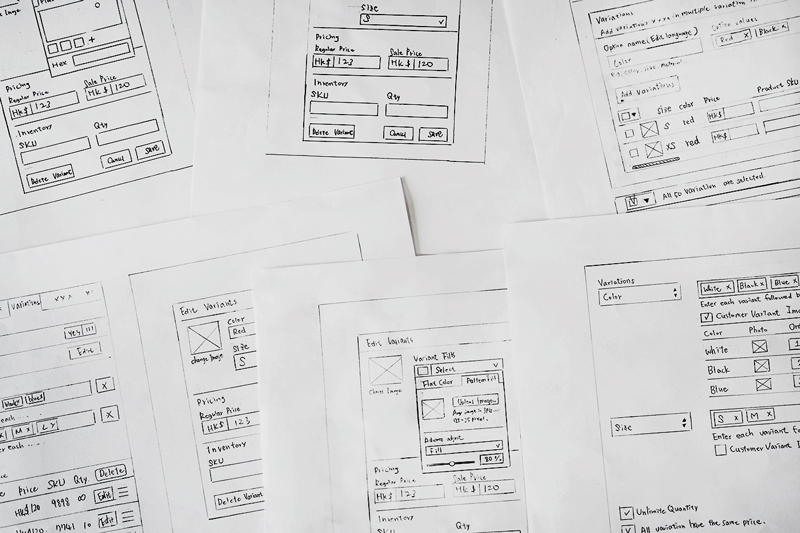 Hex
Pricing
Regular Price Sale Price
HK$ 123 HK$ 120
Inventory
SKU Qty
Delete Variant Cancel Save
Size
S
Pricing
Regular Price Sale Price
HK$ 123 HK$ 120
Inventory
SKU Qty
Delete Variant Cancel Save
Variations
in multiple variation
Option name (Edit language) Option values
Color Red x Black x
Add variations
Size color Price Product SKU
S red HK$
XS red HK$
All 50 variation are selected
Variations
Yes
Edit
x
M x L x
x
Price SKU Qty Delete
HK$120 9898 ∞ Edit
10 Edit
Edit Variants
Color
Red
Change Image
Size
S
Pricing
Regular Price
HK$ 123
Inventory
SKU
Delete Variant
Edit Variants
Variant Fills
Select
Change Image
Flat Color Pattern Fill
Upload Images
Fill
80 %
Pricing
Regular Price Sale Price
HK$ 123 HK$ 120
Inventory
SKU Qty
Variations
Color
White x Black x Blue x
Enter each variant followed b
Customer Variant Ima
Color Photo
White
Black
Blue
Size
S x M x
Enter each variant followed
Customer Variant I
Unlimite Quantity
All variation have the same price.